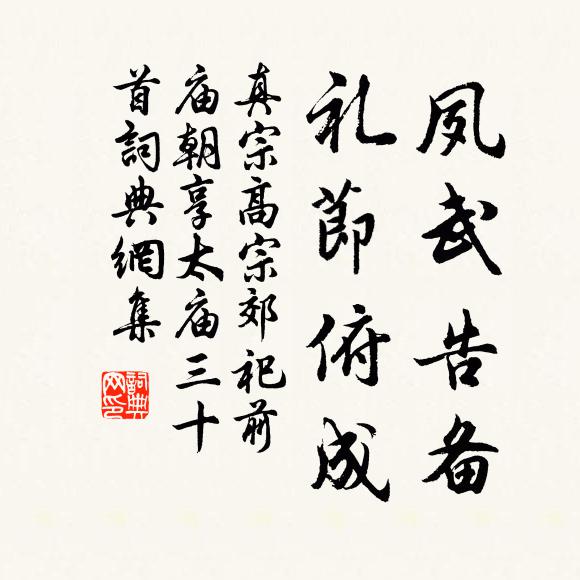 夙武告备
礼節俯成
真宗高宗郊祀前
庙朝享太庙三十
首詞典網集
詞典
网印